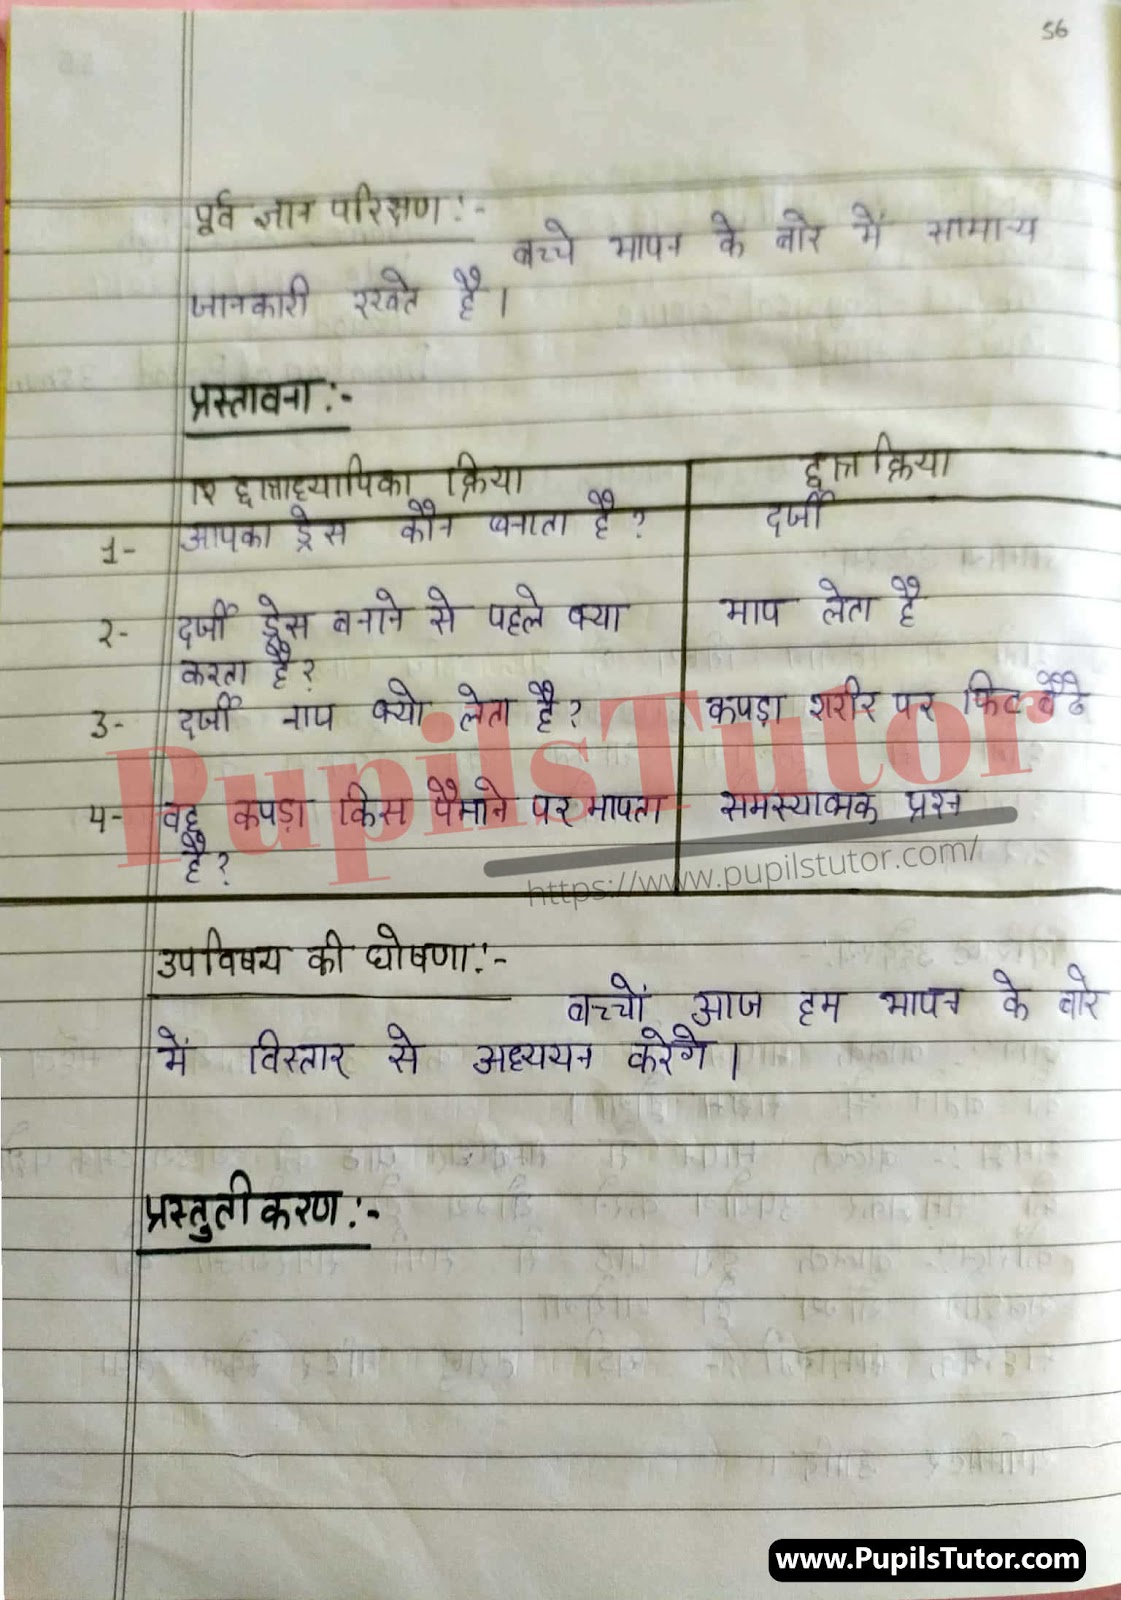 56
पूर्व ज्ञान परिक्षण :-
बच्चे मापन के बारे में सामान्य
जानकारी रखते है।
प्रस्तावना :-
छात्राध्यापिका क्रिया छात्र क्रिया
1- आपका ड्रेस कौन बनाता है ? दर्जी
2- दर्जी ड्रेस बनाने से पहले क्या माप लेता है
करता है ?
3- दर्जी नाप क्यो लेता है ? कपड़ा शरीर पर फिट बैठे
PupilsTutor
4- वह कपड़ा किस पैमाने पर मापता समस्यात्मक प्रश्न
है ?
https://www.pupilstutor.com/
उपविषय की घोषणा :-
बच्चों आज हम मापन के बारे
में विस्तार से अध्ययन करेगे।
प्रस्तुतीकरण :-
www.PupilsTutor.com